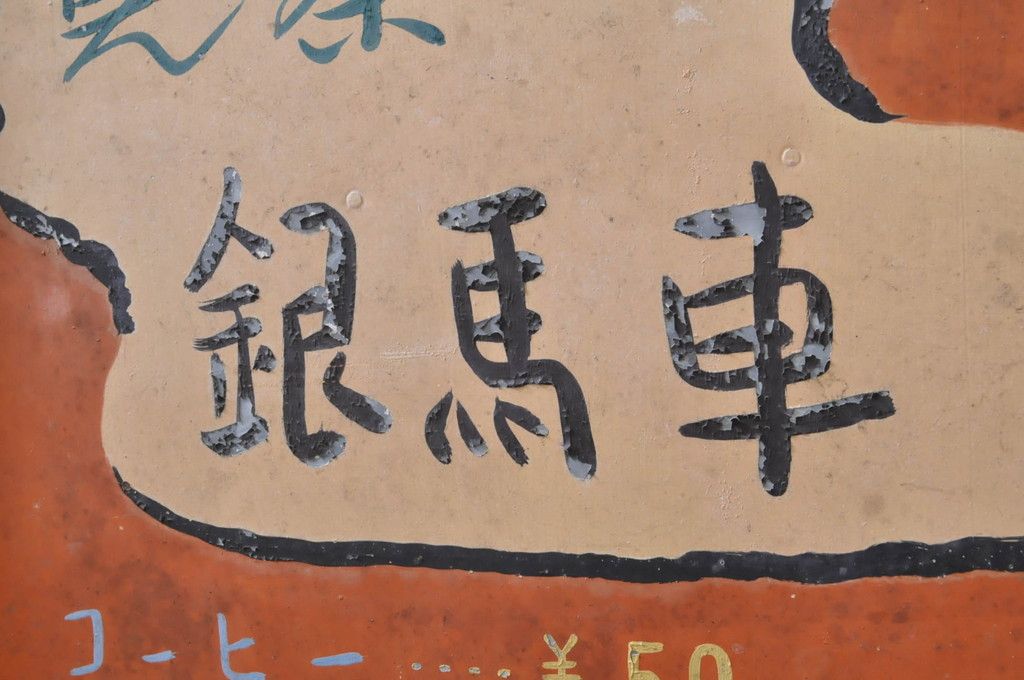 銀馬車
コーヒー ..... ¥50